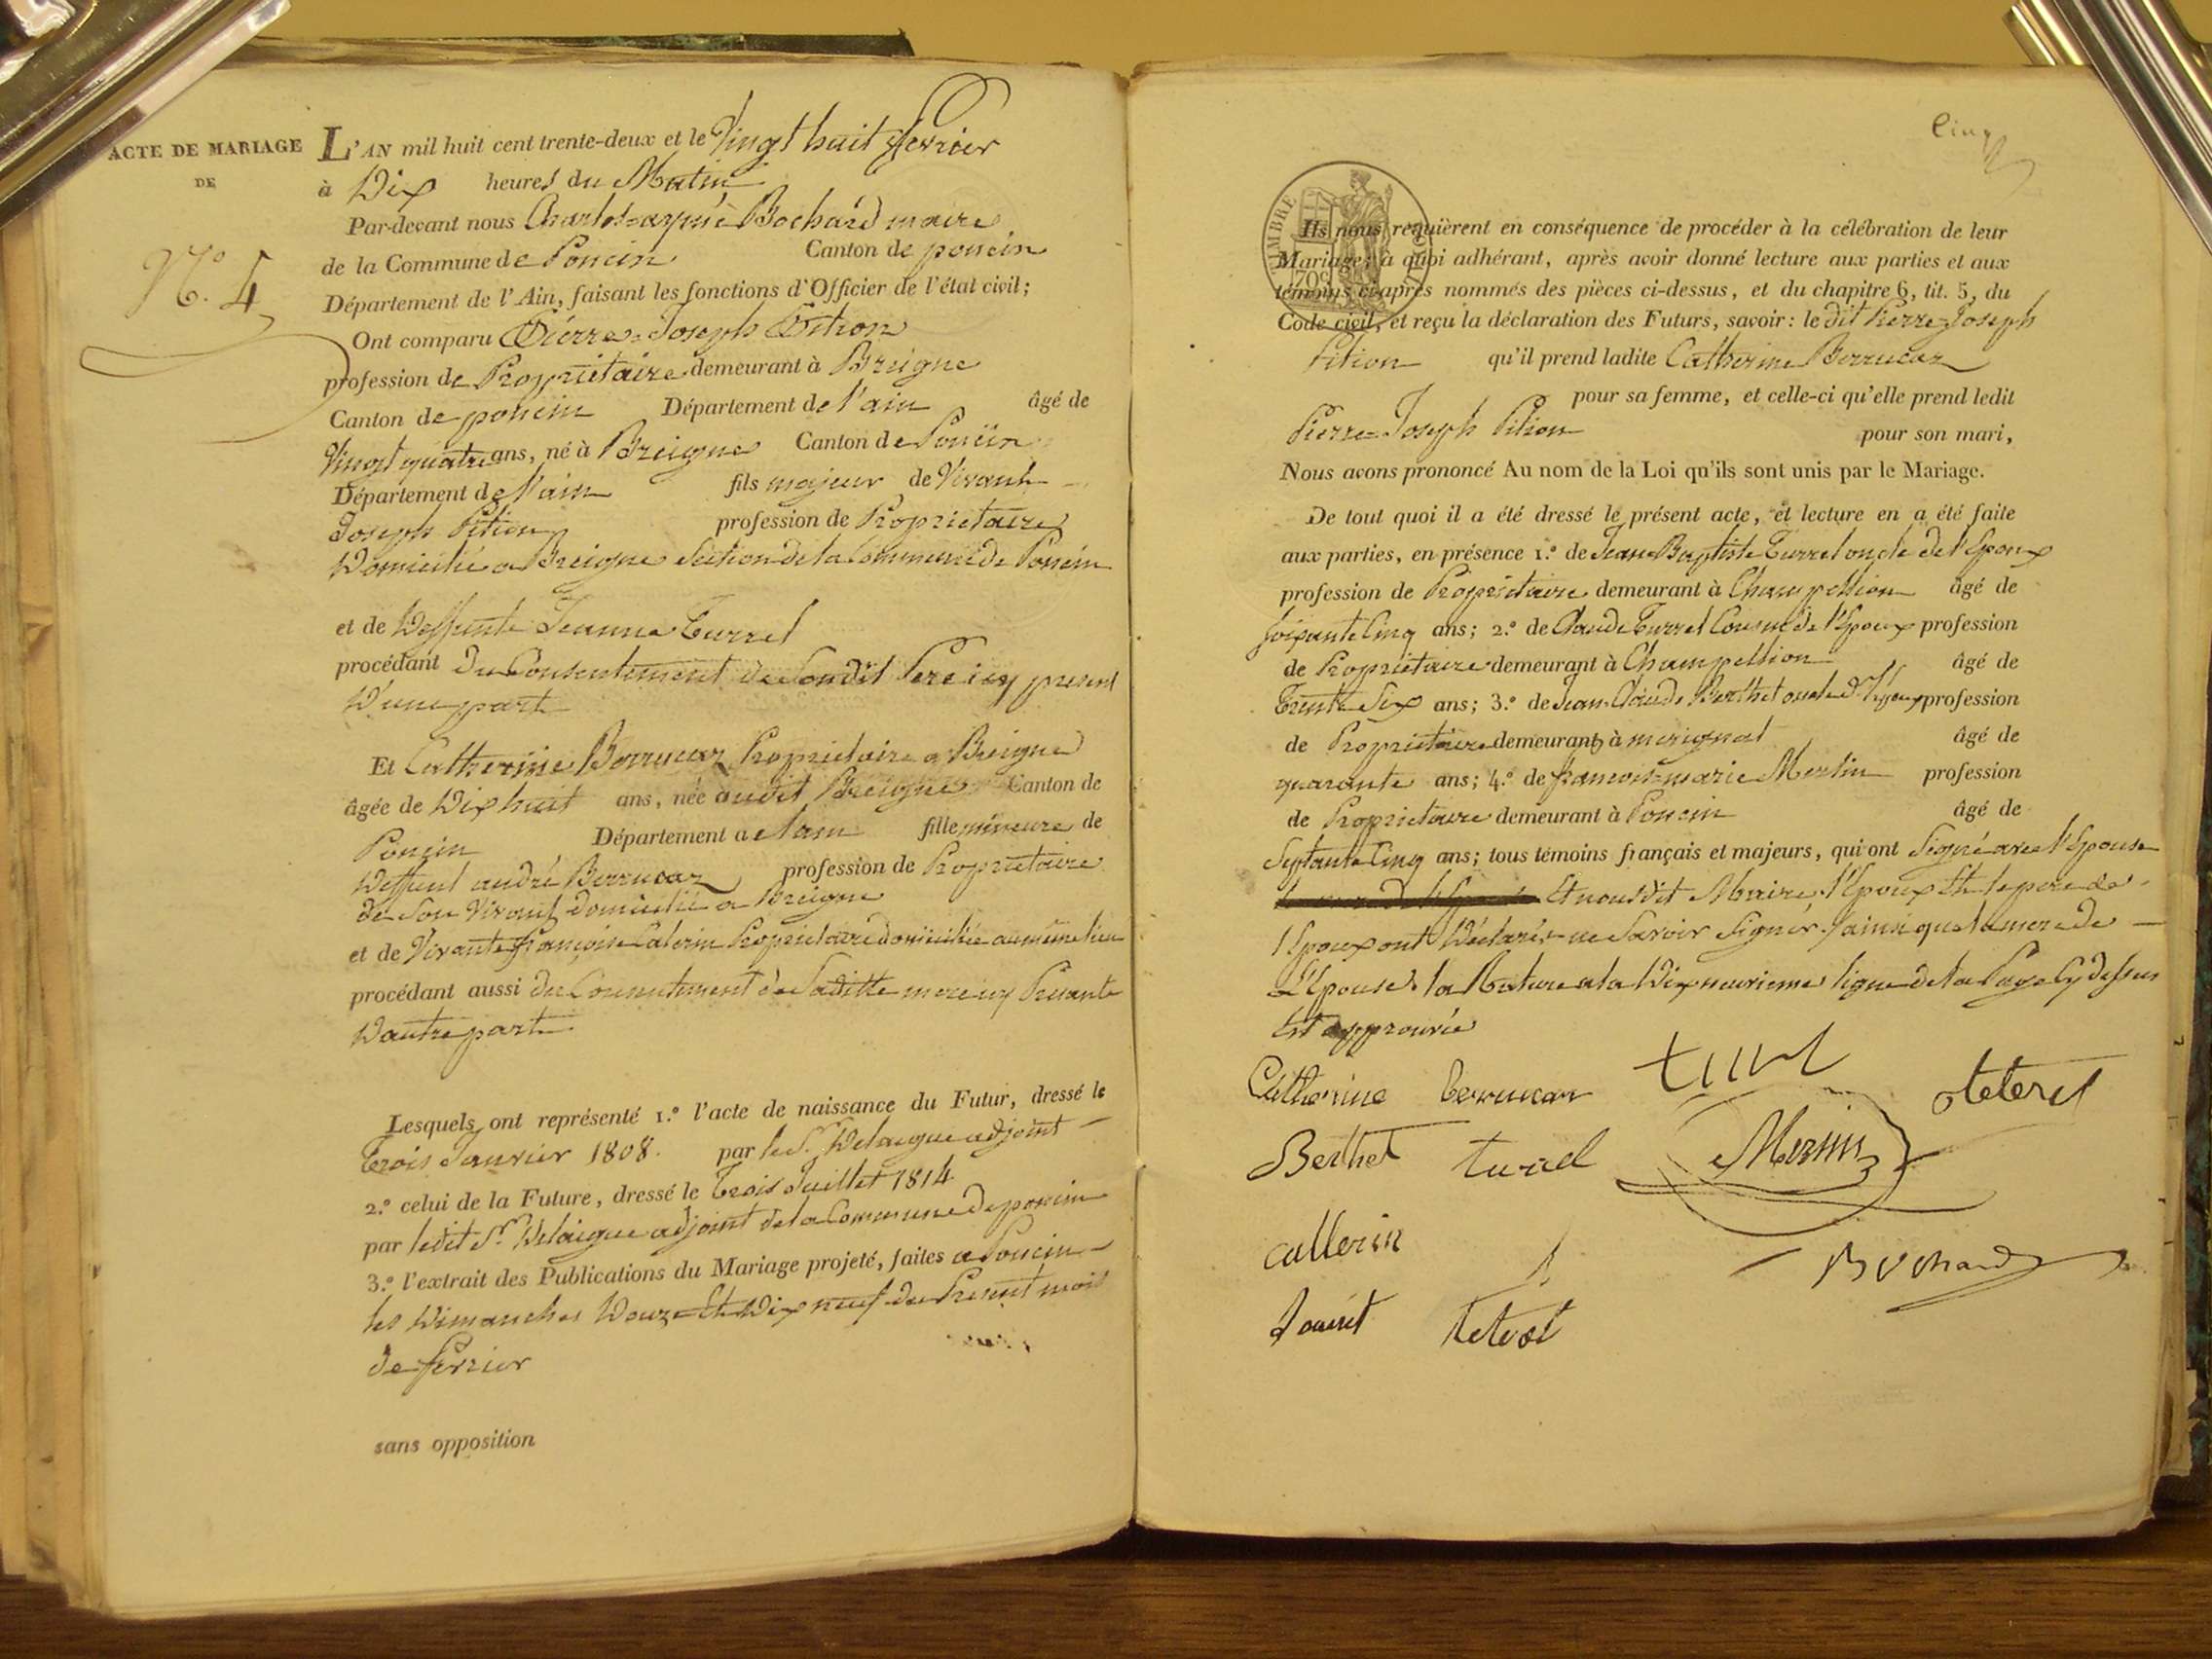 ACTE DE MARIAGE
DE
N.º 4
L'AN mil huit cent trente-deux et le Vingt huit fevrier
à Dix heures du Matin
Par-devant nous Charles-aymé Bochard maire
de la Commune de Poncin Canton de poncin
Département de l'Ain, faisant les fonctions d'Officier de l'état civil;
Ont comparu Pierre-Joseph Pition
profession de Propriétaire demeurant à Breigne
Canton de poncin Département de l'ain âgé de
Vingt quatre ans, né à Breigne Canton de Poncin
Département de l'ain fils majeur de Vivant
Joseph Pition profession de Proprietaire
Domicilié a Breigne Section de la Commune de Poncin
et de Deffunte Jeanne Turrel
procédant du Consentement de Sondit Pere icy present
D'une part
Et Catherine Berrucaz Proprietaire a Breigne
âgée de Dix huit ans, née audit Breigne Canton de
Poncin Département de lain fille mineure de
Deffunt andré Berrucaz profession de Proprietaire
de Son Vivant domicilié a Breigne
et de Vivante françoise Calerin Proprietaire domiciliée au même lieu
procédant aussi du Consentement de Saditte mere icy Presante
D'autre part
Lesquels ont représenté 1.º l'acte de naissance du Futur, dressé le
Trois Janvier 1808. par le S.r Delaigue adjoint
2.º celui de la Future, dressé le Trois Juillet 1814
par ledit S.r Delaigue adjoint de la Commune de poncin
3.º l'extrait des Publications du Mariage projeté, faites a Poncin
les Dimanches Douze Et Dix neuf du Present mois
de fevrier
sans opposition
Cinq
TIMBRE
70c
Ils nous requièrent en conséquence de procéder à la célébration de leur
Mariage; à quoi adhérant, après avoir donné lecture aux parties et aux
témoins ci-après nommés des pièces ci-dessus, et du chapitre 6, tit. 5, du
Code civil, et reçu la déclaration des Futurs, savoir: le dit Pierre-Joseph
Pition qu'il prend ladite Catherine Berrucaz
pour sa femme, et celle-ci qu'elle prend ledit
Pierre-Joseph Pition pour son mari,
Nous avons prononcé Au nom de la Loi qu'ils sont unis par le Mariage.
De tout quoi il a été dressé le présent acte, et lecture en a été faite
aux parties, en présence 1.º de Jean Baptiste Turrel oncle de l'Epoux
profession de Propriétaire demeurant à Champeltion âgé de
Soixante Cinq ans; 2.º de Claude Turrel Cousin de l'Epoux profession
de Propriétaire demeurant à Champeltion âgé de
Trente Six ans; 3.º de Jean Claude Berthet oncle d l'Epoux profession
de Propriétaire demeurant à merignat âgé de
quarante ans; 4.º de francois-marie Merlin profession
de Proprietaire demeurant à Poncin âgé de
Septante Cinq ans; tous témoins français et majeurs, qui ont Signé avec l'Epouse
Et nous dit Maire, l'Epoux Et le pere de
l'Epoux ont Déclarés ne Savoir Signér, ainsi que la mere de
L'Epouse. la Rature a la Dix neuvieme ligne de la Page Cy dessus
Est approuvée
Catherine berrucar turel
Berthet turrel Merlin
callerin Bochard